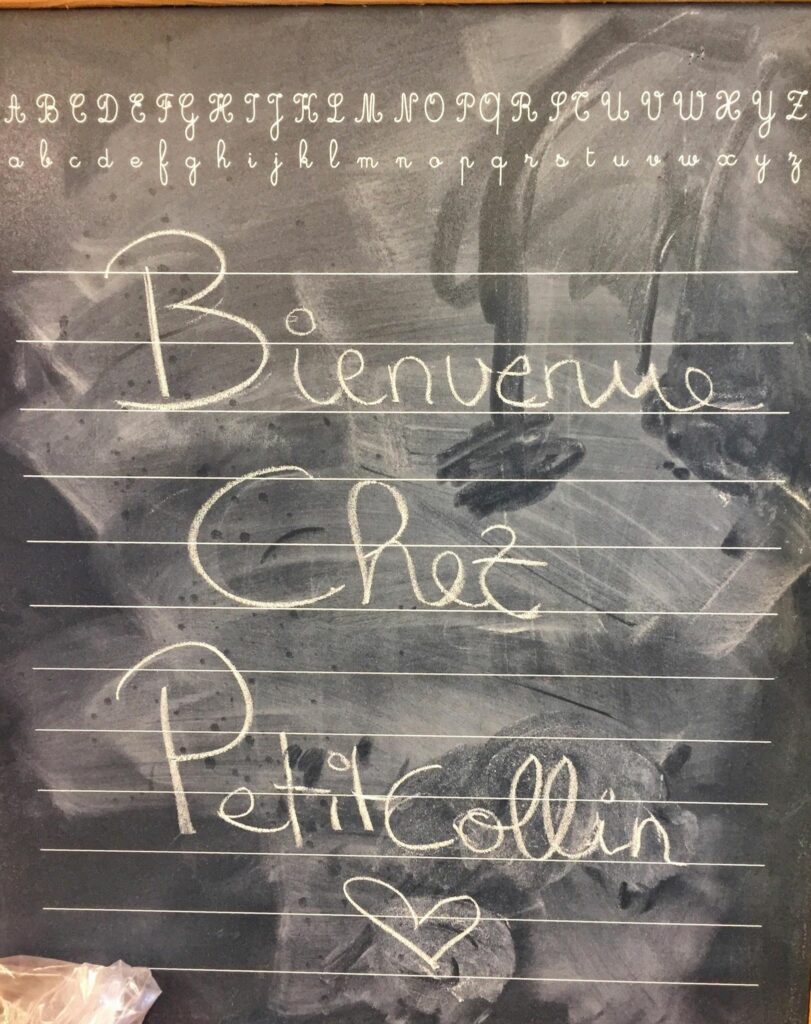 A B C D E F G H I J K L M N O P Q R S T U V W X Y Z
a b c d e f g h i j k l m n o p q r s t u v w x y z
Bienvenue
Chez
Petit Collin